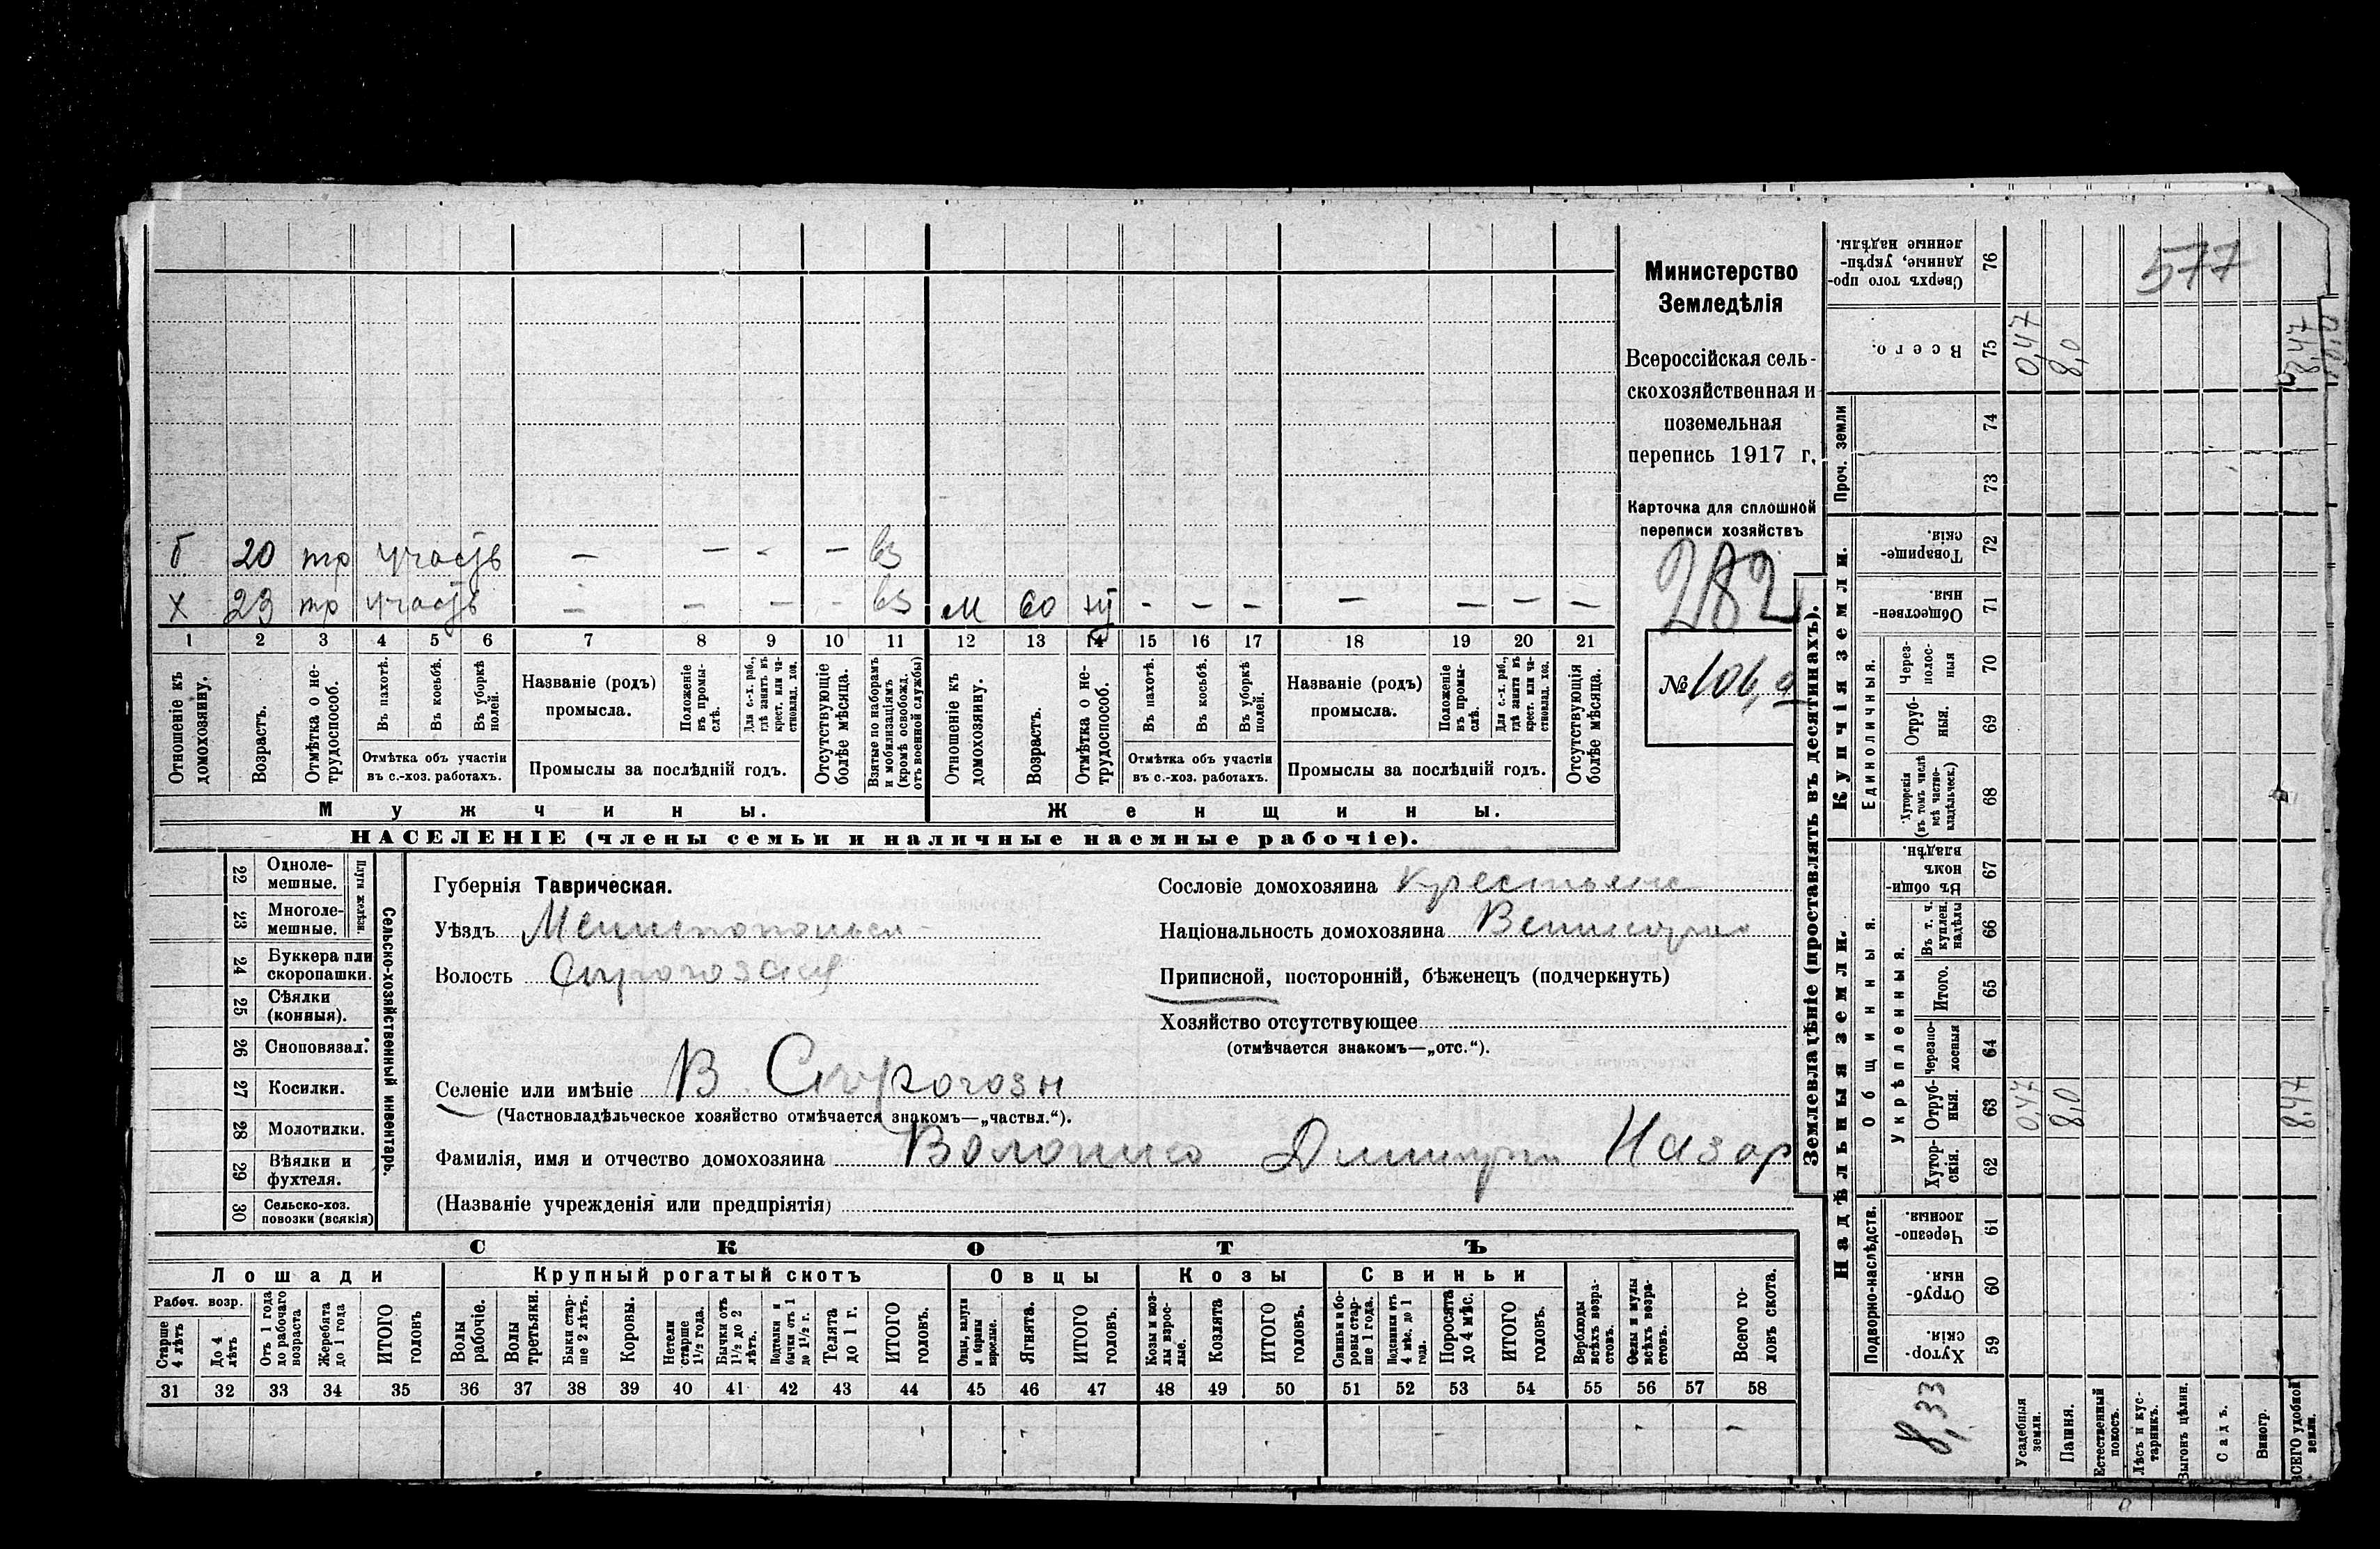 577
Министерство
Земледѣлія
Всероссійская сель-
скохозяйственная и
поземельная
перепись 1917 г.
Карточка для сплошной
переписи хозяйствъ
282
№ 106,а
б 20 тр участв — — - — вз
х 23 тр участв — — — - вз м 60 н — — — — — — —
1 2 3 4 5 6 7 8 9 10 11 12 13 14 15 16 17 18 19 20 21
Отношеніе къ домохозяину.
Возрастъ.
Отмѣтка о не-трудоспособ.
Въ пахотѣ.
Въ косьбѣ.
Въ уборкѣ полей.
Отмѣтка объ участіи
въ с.-хоз. работахъ.
Названіе (родъ)
промысла.
Положеніе въ промы-слѣ.
Для с.-х. раб., гдѣ занятъ въ крест. или ча-стновлад. хоз.
Промыслы за послѣдній годъ.
Отсутствующіе болѣе мѣсяца.
Взятые по наборамъ и мобилизаціямъ (кромѣ освобожд. отъ военной службы)
Отношеніе къ домохозяину.
Возрастъ.
Отмѣтка о не-трудоспособ.
Въ пахотѣ.
Въ косьбѣ.
Въ уборкѣ полей.
Отмѣтка объ участіи
въ с.-хоз. работахъ.
Названіе (родъ)
промысла.
Положеніе въ промы-слѣ.
Для с.-х. раб., гдѣ занята въ крест. или ча-стновлад. хоз.
Промыслы за послѣдній годъ.
Отсутствующія болѣе мѣсяца.
Мужчины. Женщины.
НАСЕЛЕНІЕ (члены семьи и наличные наемные рабочіе).
Сельско-хозяйственный инвентарь.
Плуги желѣзн.
22 Одноле-мешные.
23 Многоле-мешные.
24 Буккера или скоропашки.
25 Сѣялки (конныя).
26 Сноповязал.
27 Косилки.
28 Молотилки.
29 Вѣялки и фухтеля.
30 Сельско-хоз. повозки (всякія)
Губернія Таврическая.
Уѣздъ Мелитопольск
Волость Сирогозская
Селеніе или имѣніе В. Сирогозы
(Частновладѣльческое хозяйство отмѣчается знакомъ—„частвл.“).
Фамилія, имя и отчество домохозяина Волошко Димитрій Назар
(Названіе учрежденія или предпріятія)
Сословіе домохозяина Крестьянс
Національность домохозяина Великорос
Приписной, посторонній, бѣженецъ (подчеркнуть)
Хозяйство отсутствующее
(отмѣчается знакомъ—„отс.“).
СКОТЪ
Лошади Крупный рогатый скотъ Овцы Козы Свиньи
Рабоч. возр.
Старше 4 лѣтъ
До 4 лѣтъ
Отъ 1 года до рабочаго возраста
Жеребята до 1 года
ИТОГО головъ
Волы рабочіе.
Волы третьяки.
Быки стар-ше 2 лѣтъ.
Коровы.
Нетели старше 1½ года.
Бычки отъ 1½ до 2 лѣтъ.
Подтелки и бычки отъ 1 до 1½ г.
Телята до 1 г.
ИТОГО головъ.
Овцы, валухи и бараны взрослые.
Ягнята.
ИТОГО головъ.
Козы и коз-лы взрос-лые.
Козлята
ИТОГО головъ.
Свиньи и бо-ровы стар-ше 1 года.
Подсвинки отъ 4 мѣс. до 1 года.
Поросята до 4 мѣс.
ИТОГО головъ.
Верблюды всѣхъ возра-стовъ.
Ослы и мулы всѣхъ возра-стовъ.
Всего го-ловъ скота.
31 32 33 34 35 36 37 38 39 40 41 42 43 44 45 46 47 48 49 50 51 52 53 54 55 56 57 58
Землевладѣніе (проставлять въ десятинахъ).
Надѣльныя земли.
Подворно-наслѣдств.
Хутор-скія. 59
Отруб-ныя. 60
Черезпо-лосныя. 61
Общинныя.
Укрѣпленныя.
Хутор-скія. 62
Отруб-ныя. 63 0,47 8,0 8,47
Черезпо-лосныя 64
Итого. 65
Въ т. ч. куплен. надѣлы 66
Въ общин-номъ владѣн. 67
Купчія земли.
Единоличныя.
Хуторскія (въ томъ числѣ всѣ частно-владѣльческ.) 68
Отруб-ныя. 69
Через-полос-ныя 70
Обществен-ныя. 71
Товарище-скія. 72
Проч. земли
73
74
Всего. 75 0,47 8,0 8,47
Сверхъ того про-данные, укрѣп-ленные надѣлы. 76
8,33
Усадебныя земли.
Пашня.
Естественный покосъ.
Лѣсъ и кус-тарникъ.
Выгонъ цѣлин.
Садъ.
Виногр.
ВСЕГО удобной земли.